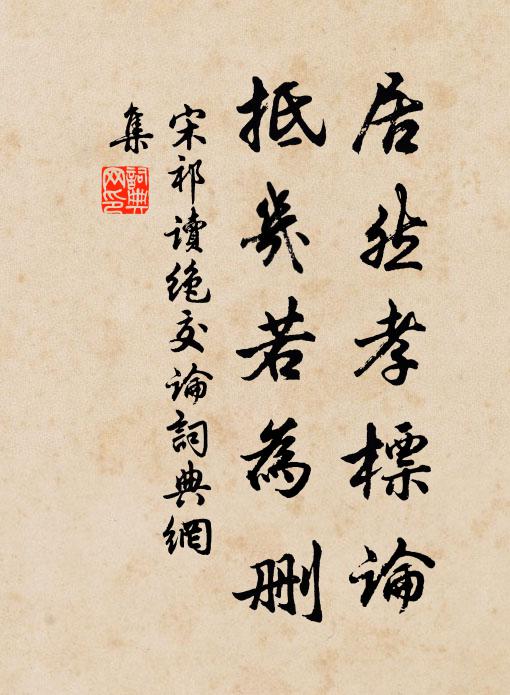 居然孝標論
抵几若為刪
宋祁讀絕交論詞典網
集
詞典
网印